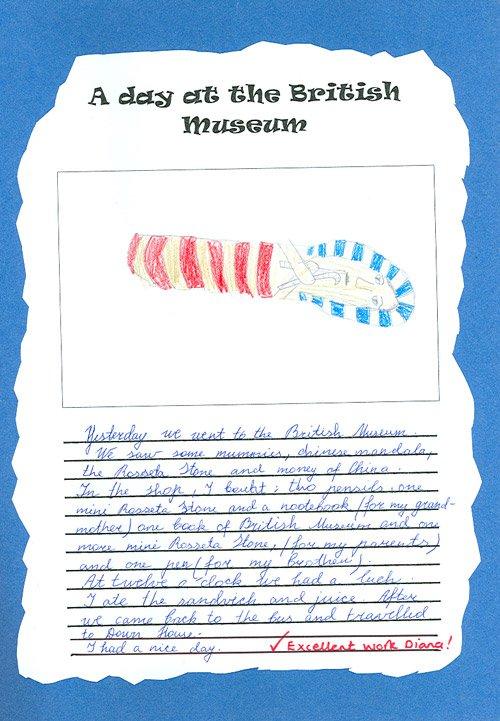 A day at the British
Museum
Yesterday we went to the British Museum.
We saw some mummies, chinese mandala,
the Rosseta Stone and money of China.
In the shop, I bought: two pensils, one
mini Rosseta Stone and a nootebook (for my grand-
mother) one book of British Museum and one
more mini Rosseta Stone, (for my parents)
and one pen (for my brother).
At twelve a clock we had a luch.
I ate the sandvich and juice. After
we came back to the bus and travelled
to Down House.
I had a nice day.
✓ Excellent work Diana!